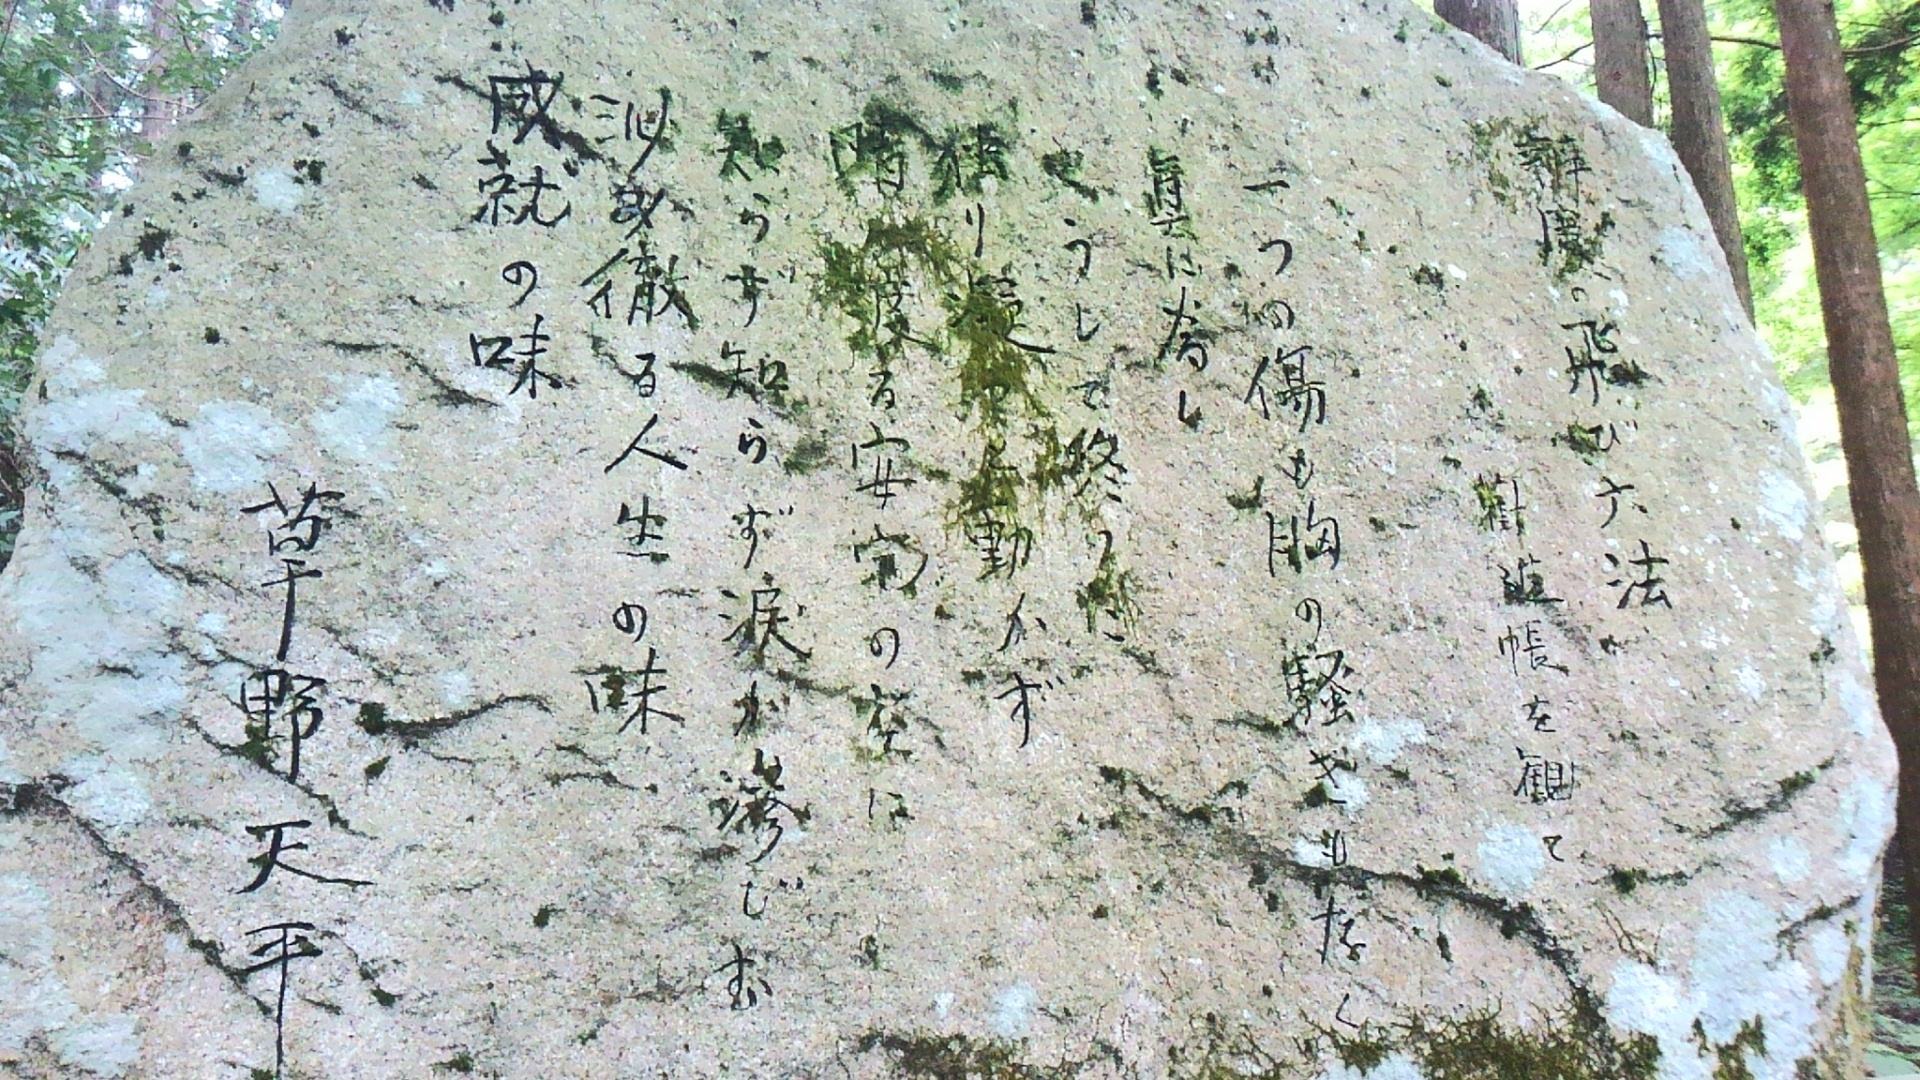 辨慶の飛び六法
勸進帳を観て
一つの傷も胸の騒ぎもなく
眞に為し
さうして終つた
独り凝乎と動かず
晴渡る安宅の空には
知らず知らず涙が滲じむ
沁み徹る人生の味
成就の味
草野天平